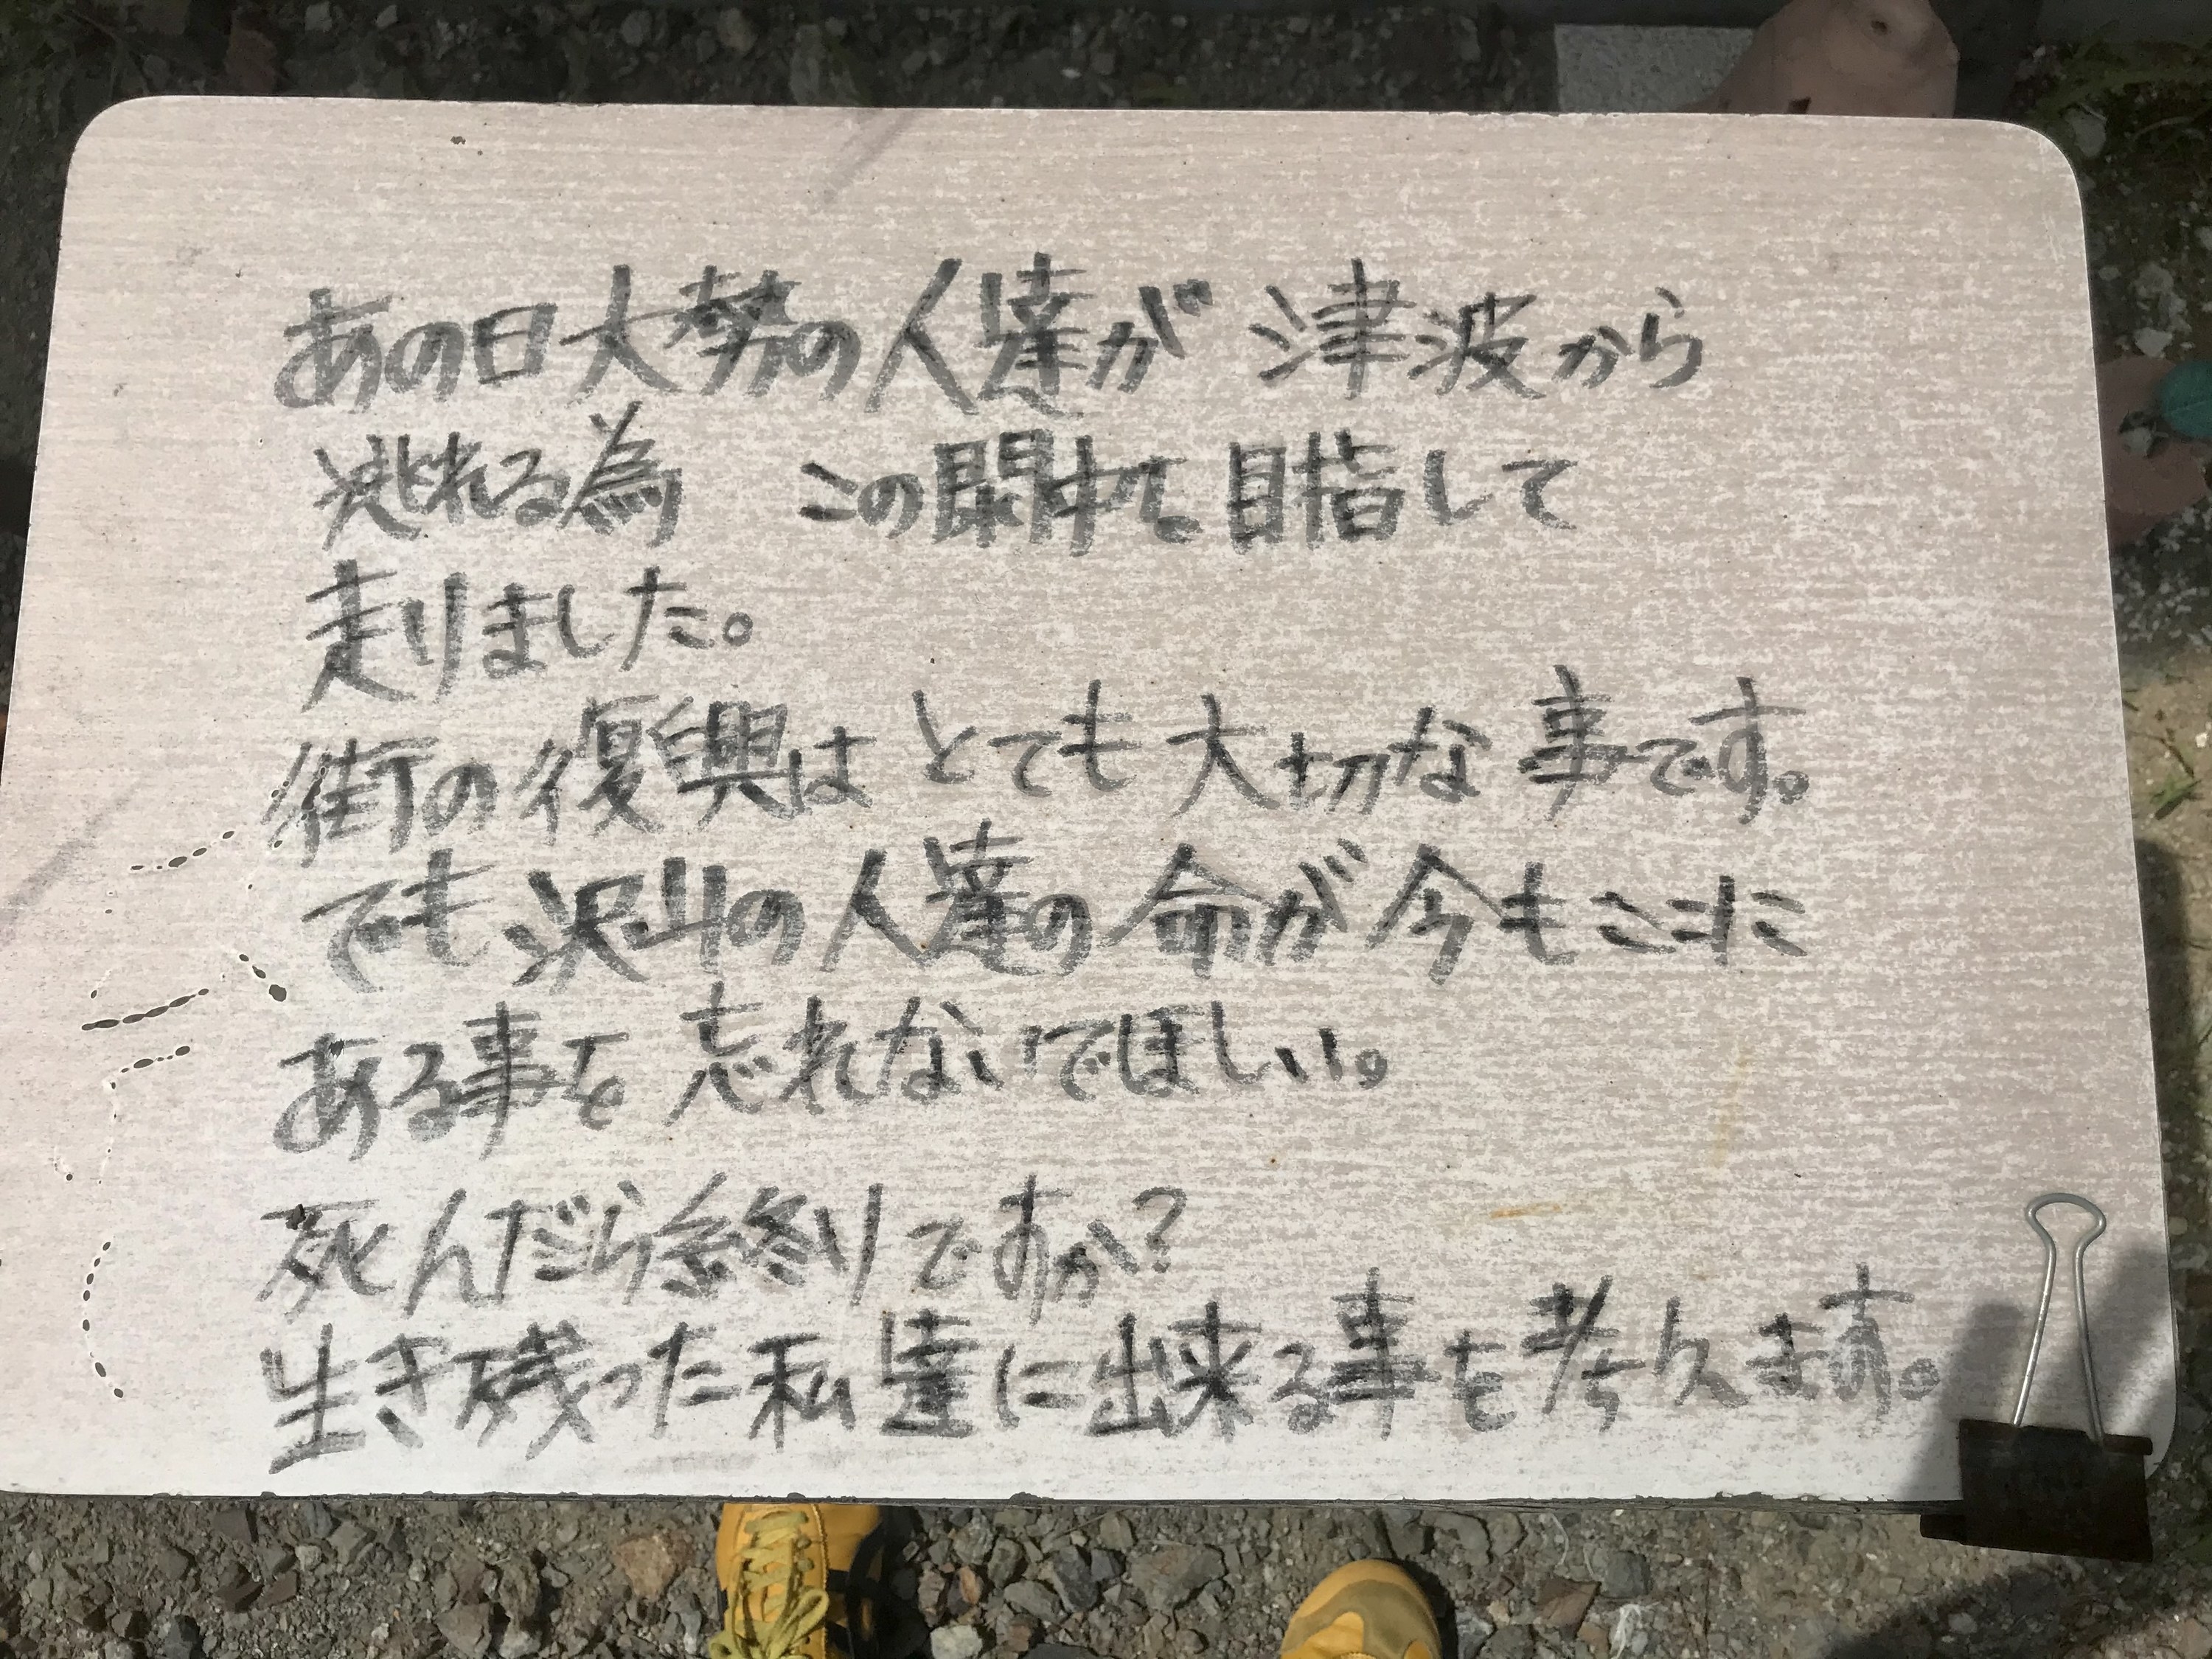 あの日大勢の人達が 津波から
逃れる為 この閖中を目指して
走りました。
街の復興は とても大切な事です。
でも沢山の人達の命が今もここに
ある事を 忘れないでほしい。
死んだら終りですか?
生き残った私達に出来る事を考えます。